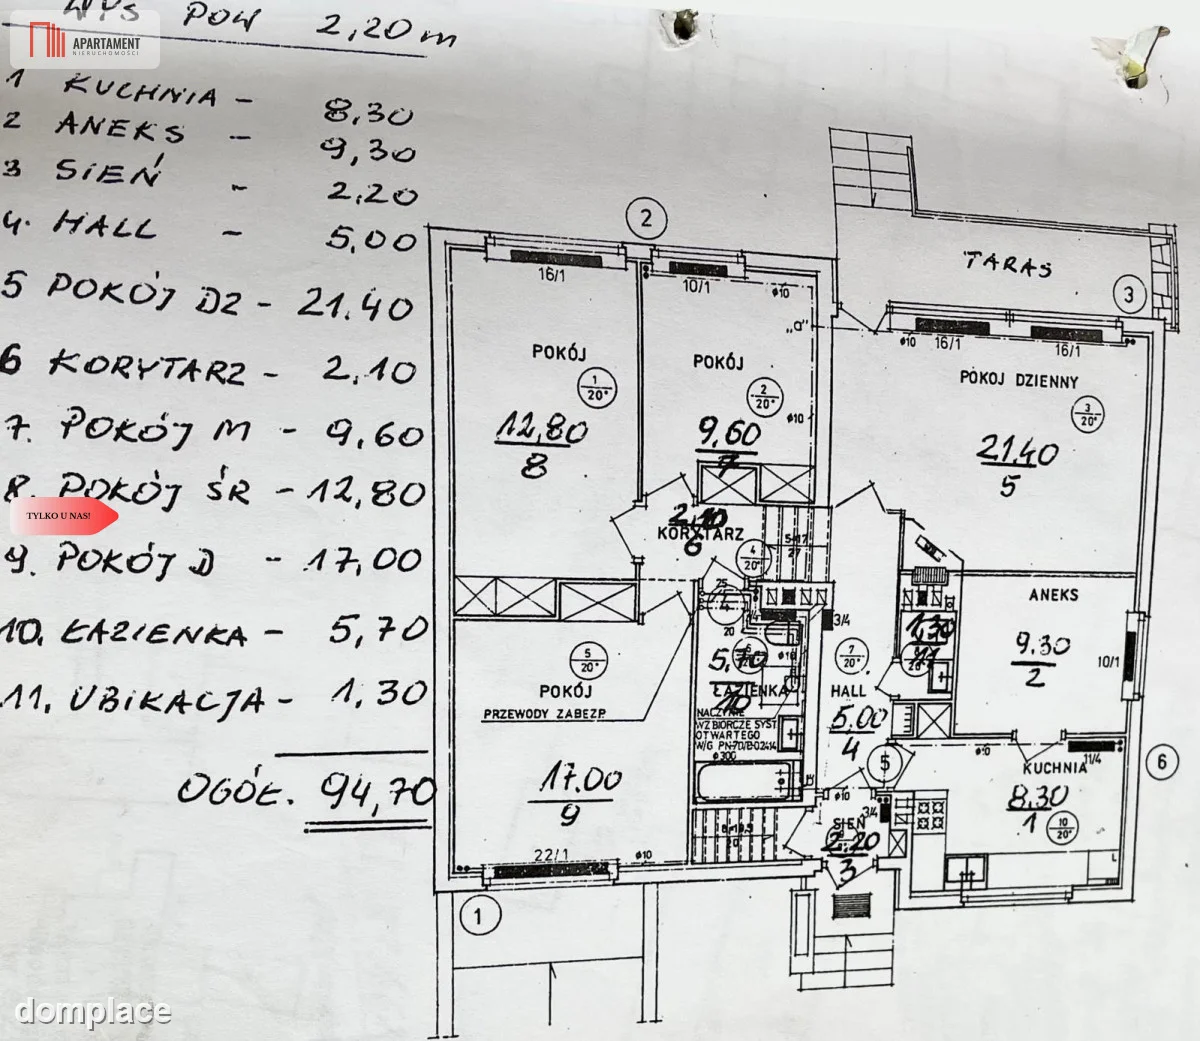 WYS POW 2,20 m
APARTAMENT
NIERUCHOMOŚCI
1 KUCHNIA - 8,30
2 ANEKS - 9,30
3 SIEŃ - 2.20
4. HALL - 5,00
5 POKÓJ DZ - 21.40
6 KORYTARZ - 2,10
7. POKÓJ M - 9,60
8. POKÓJ ŚR - 12,80
TYLKO U NAS!
9. POKÓJ D - 17,00
10. ŁAZIENKA - 5,70
11. UBIKACJA - 1,30
OGÓŁ. 94,70
2
TARAS
3
16/1
10/1
ø10
„a"
ø10
16/1
16/1
POKÓJ
1
20°
12,80
8
POKÓJ
2
20°
ø10
9.60
7
POKÓJ DZIENNY
3
20°
21.40
5
2,10
KORYTARZ
6
4
20°
25
20
3/4
ANEKS
9.30
2
10/1
1,30
11
5
20°
POKÓJ
PRZEWODY ZABEZP.
17.00
9
5,70
ŁAZIENKA
10
ø10
NACZYNIE
WZBIORCZE SYST
OTWARTEGO
W/G PN-70/B-02414
ø300
7
20°
HALL
5.00
4
5
ø10
ø10
KUCHNIA
11/4
8.30
1
10
20°
6
SIEŃ
2.20
3
3/4
22/1
ø10
1
domplace